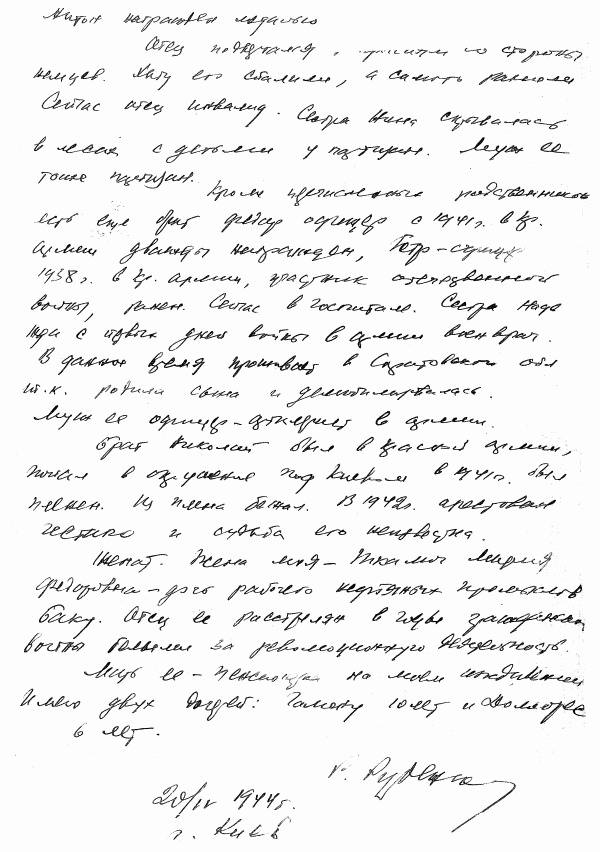 Антон награжден медалью
Отец подвергался , со стороны
немцев. Хату его спалили, а самого ранили
Сейчас отец инвалид. Сестра Нина скрывалась
в лесах с детьми у партизан. Муж ее
тоже партизан.
Кроме перечисленных родственников
есть еще брат Федор офицер с 1941 г. в Кр.
армии дважды награжден, Петр-
1938 г. в Кр. армии, участник отечественной
войны, ранен. Сейчас в госпитале. Сестра Наде
жда с первых дней войны в армии военврач.
В данное время проживает в Саратовской обл
т.к. родила сына и демобилизовалась.
Муж ее офицер-артилерист в армии.
Брат Николай был в Красной армии,
попал в окружение под Киевом в 1941 г. был
пленен. Из плена бежал. В 1942 г. арестован
гестапо и судьба его неизвестна.
Женат. Жена моя – Мария
Федоровна – дочь рабочего нефтяных промыслов
Баку. Отец ее расстрелян в годы гражданской
войны белыми за революционную деятельность.
Мать ее – пенсионерка на моем иждивении
Имею двух дочерей: Галину 10 лет и Долорес
6 лет.
Р. Руденко
20/IV 1944 г.
г. Киев